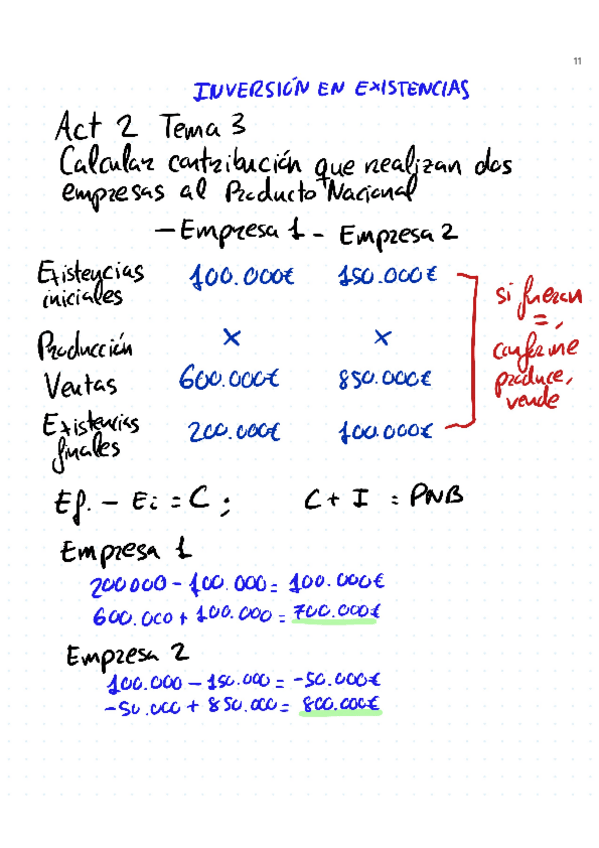 11
INVERSIÓN EN EXISTENCIAS
Act 2 Tema 3
Calcular contribución que realizan dos
empresas al Producto Nacional
- Empresa 1 - Empresa 2
Existencias iniciales 100.000€ 150.000€
Producción x x
Ventas 600.000€ 850.000€
Existencias finales 200.000€ 100.000€
si fueran
=,
conforme
produce,
vende
Ef. - Ei = C ; C + I = PNB
Empresa 1
200000 - 100.000 = 100.000€
600.000 + 100.000 = 700.000€
Empresa 2
100.000 - 150.000 = -50.000€
-50.000 + 850.000 = 800.000€